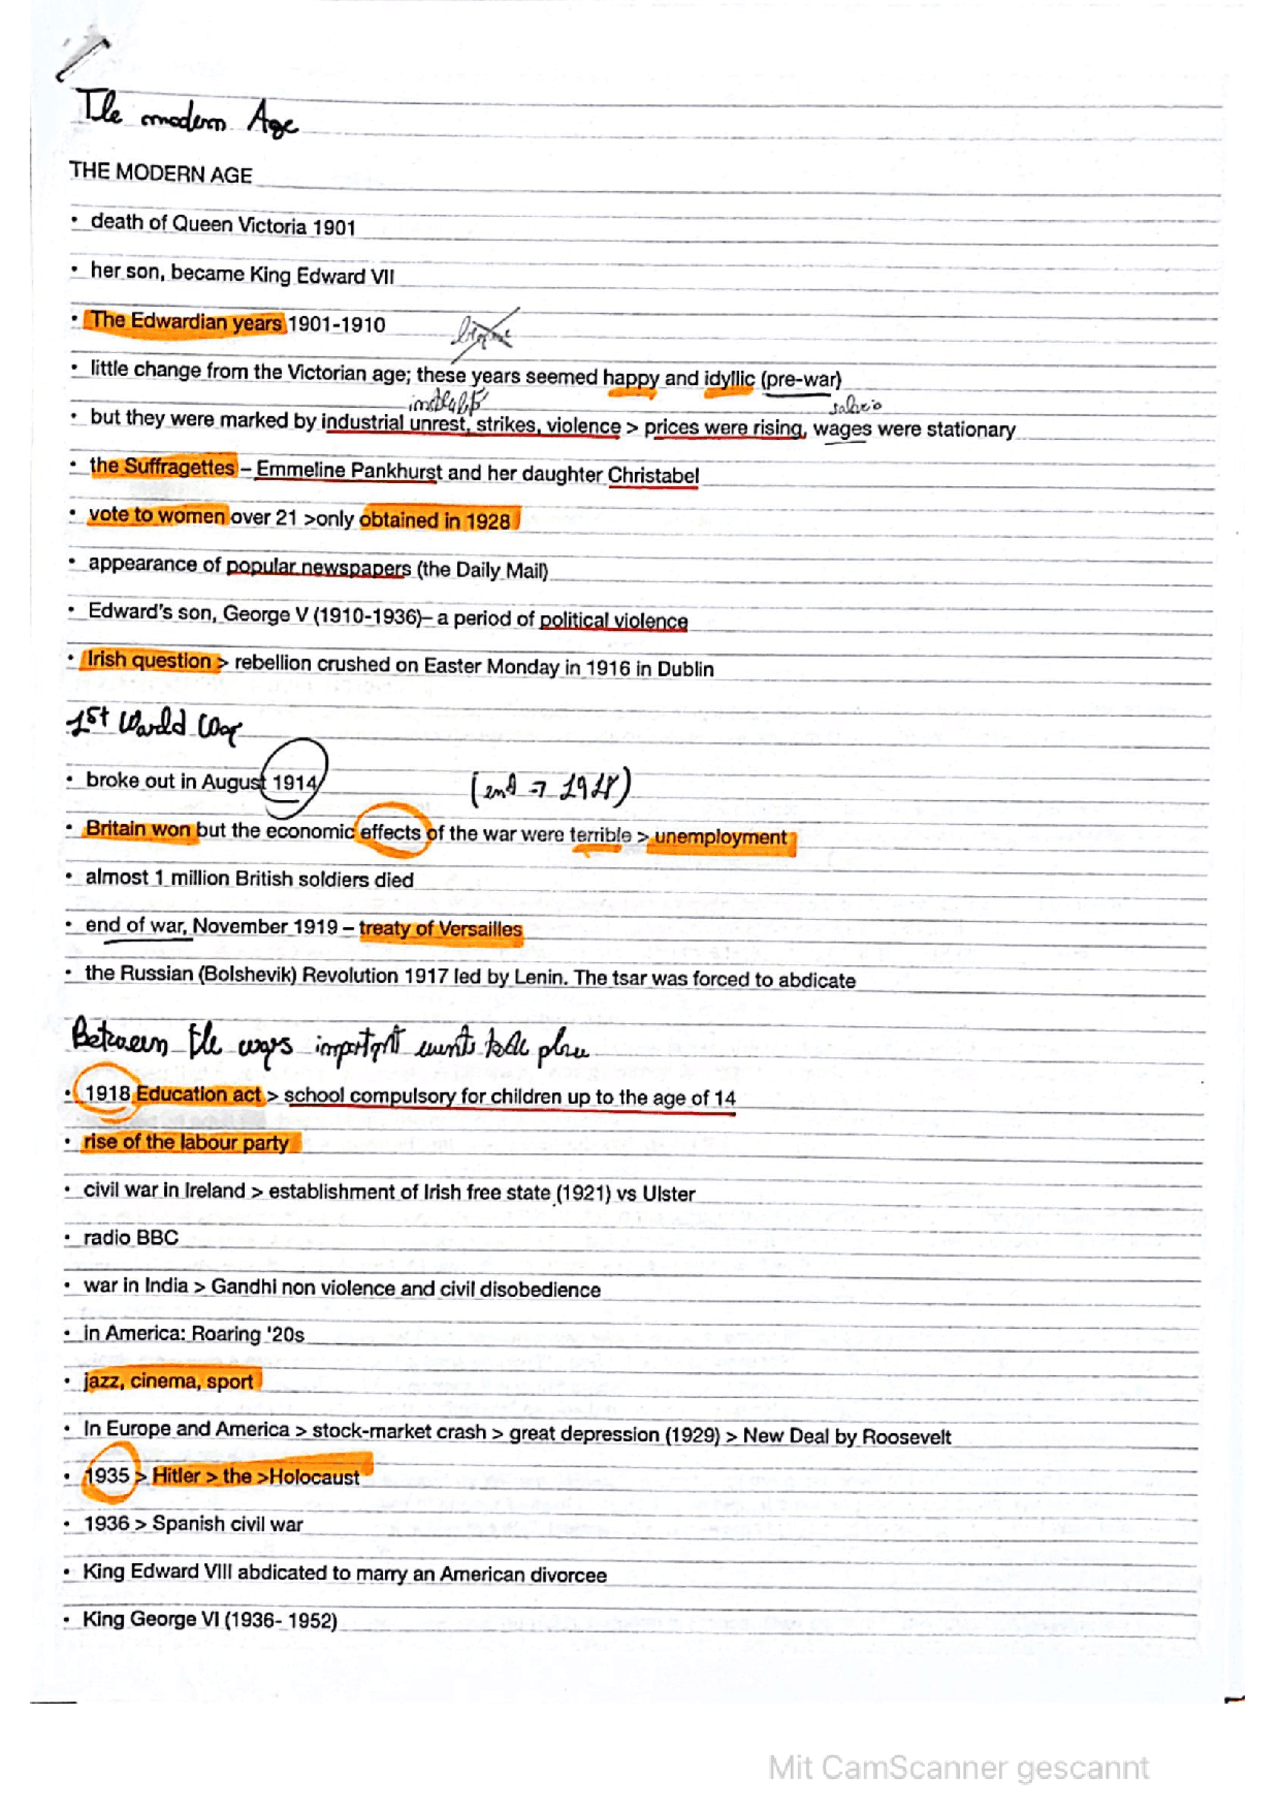 The modern Age
THE MODERN AGE
• death of Queen Victoria 1901
• her son, became King Edward VII
• The Edwardian years 1901-1910
• little change from the Victorian age; these years seemed happy and idyllic (pre-war)
salario
• but they were marked by industrial unrest, strikes, violence > prices were rising, wages were stationary
• the Suffragettes – Emmeline Pankhurst and her daughter Christabel
• vote to women over 21 >only obtained in 1928
• appearance of popular newspapers (the Daily Mail)
• Edward's son, George V (1910-1936)– a period of political violence
• Irish question > rebellion crushed on Easter Monday in 1916 in Dublin
1st World War
• broke out in August 1914 (end → 1918)
• Britain won but the economic effects of the war were terrible > unemployment
• almost 1 million British soldiers died
• end of war, November 1919 – treaty of Versailles
• the Russian (Bolshevik) Revolution 1917 led by Lenin. The tsar was forced to abdicate
Between the wars important events take place
• 1918 Education act > school compulsory for children up to the age of 14
• rise of the labour party
• civil war in Ireland > establishment of Irish free state (1921) vs Ulster
• radio BBC
• war in India > Gandhi non violence and civil disobedience
• in America: Roaring '20s
• jazz, cinema, sport
• In Europe and America > stock-market crash > great depression (1929) > New Deal by Roosevelt
• 1935 > Hitler > the >Holocaust
• 1936 > Spanish civil war
• King Edward VIII abdicated to marry an American divorcee
• King George VI (1936- 1952)
Mit CamScanner gescannt